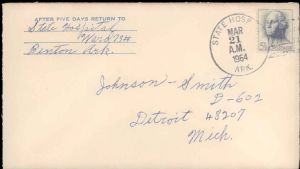 AFTER FIVE DAYS RETURN TO
State Hospital
Ward 784
Benton Ark.
STATE HOSP
MAR
21
A.M.
1964
ARK.
5¢
Johnson-Smith
D-602
Detroit 48207
Mich.